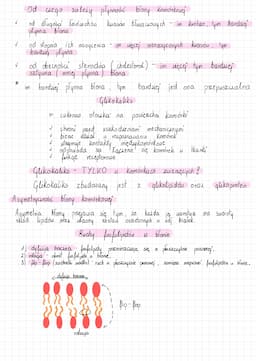 Od czego zależy płynność błony komórkowej
✓ od długości łańcucha kwasów tłuszczowych - im krótszy, tym bardziej
płynna błona
✓ od stopnia ich nasycenia - im więcej nienasyconych kwasów, tym
bardziej płynna
✓ od obecności steroidów (cholesterol) - im więcej tym bardziej
sztywna (mniej płynna) błona
* im bardziej płynna błona, tym bardziej jest ona przepuszczalna
Glikokaliks
→ cukrowa otoczka na powierzchni komórki
✓ chroni przed uszkodzeniami mechanicznymi
✓ bierze udział w rozpoznawaniu komórek
✓ kontakty międzykomórkowe
✓ odpowiada za łączenie się komórek w tkanki
✓ funkcje receptorowe
Glikokaliks - TYLKO u komórkach zwierzęcych!
Glikokaliks zbudowany jest z glikolipidów oraz glikoprotein
Asymetryczność błony komórkowej
Asymetria błony przejawia się tym, że każda jej warstwa ma swoisty
skład lipidów oraz inaczej zostało osadzonych w niej białek.
Ruchy fosfolipidów w błonie
1) dyfuzja boczna - fosfolipidy przemieszczają się w płaszczyźnie poziomej.
2) rotacja - obrót fosfolipidu w błonie.
3) flip-flop ruch w płaszczyźnie pionowej, zamiana miejscami fosfolipidów w błonie.
dyfuzja boczna
flip-flop
rotacja